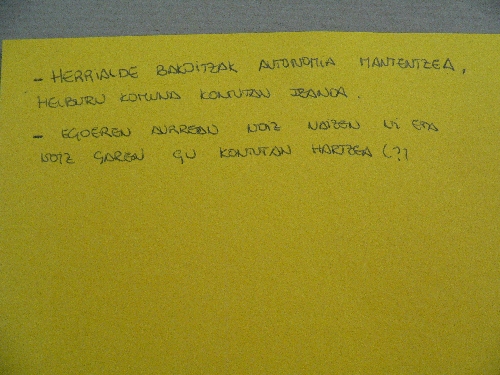 - HERRIALDE BAKOITZAK AUTONOMIA MANTENTZEA,
HELBURU KOMUNA KONTUTAN IZANDA.
- EGOEREN AURREAN NOIZ NAIZEN NI ETA
NOIZ GAREN GU KONTUTAN HARTZEA (?)